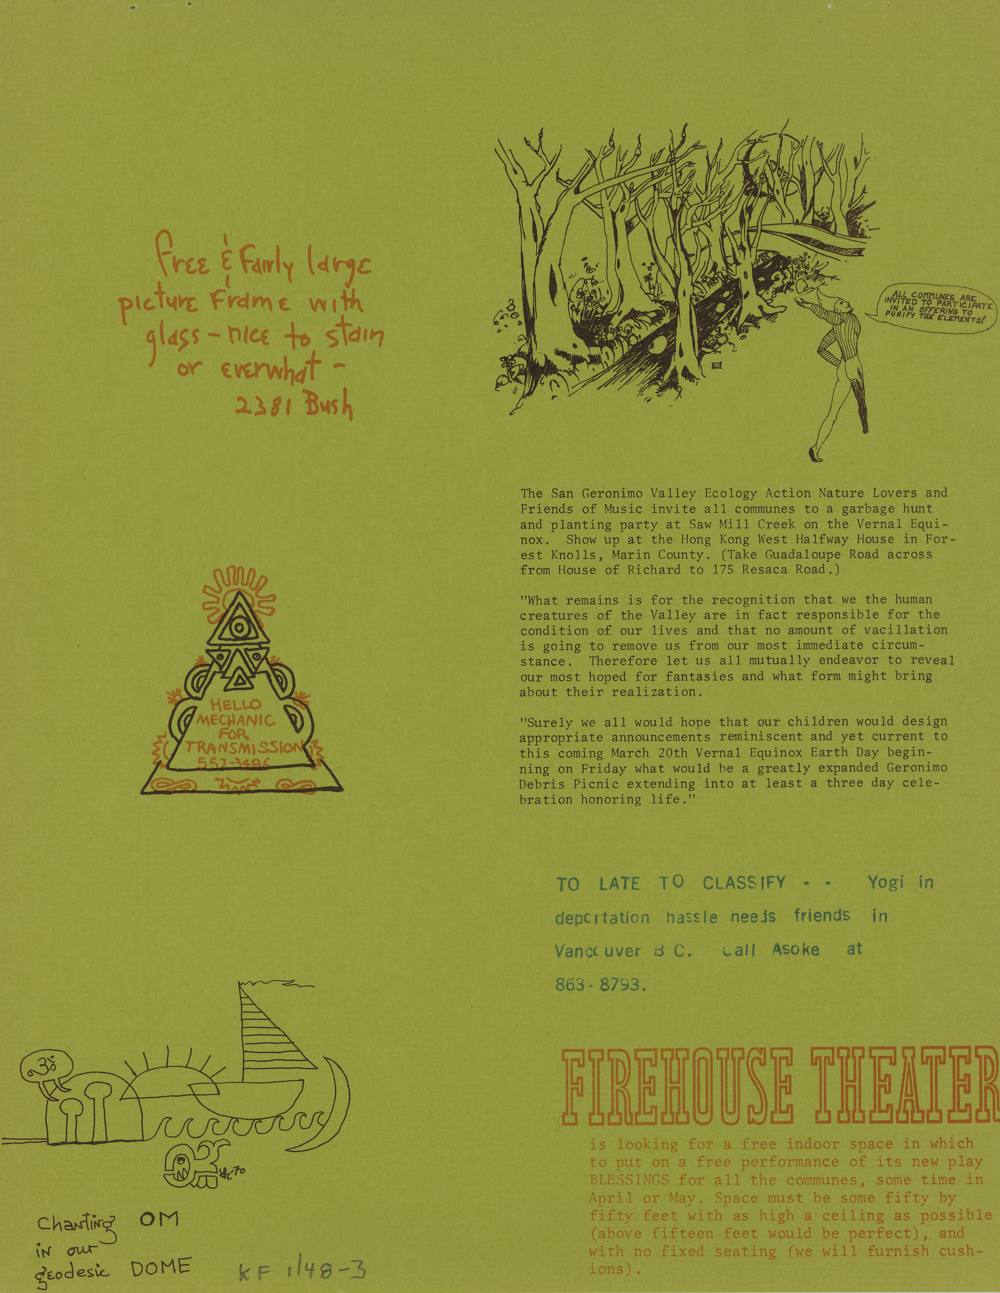 Free & Fairly large
picture Frame with
glass - nice to stain
or everwhat -
2381 Bush
ALL COMMUNES ARE
INVITED TO PARTICIPATE
IN AN OFFERING TO
PURIFY THE ELEMENTS!
The San Geronimo Valley Ecology Action Nature Lovers and
Friends of Music invite all communes to a garbage hunt
and planting party at Saw Mill Creek on the Vernal Equi-
nox.  Show up at the Hong Kong West Halfway House in For-
est Knolls, Marin County. (Take Guadaloupe Road across
from House of Richard to 175 Resaca Road.)
"What remains is for the recognition that we the human
creatures of the Valley are in fact responsible for the
condition of our lives and that no amount of vacillation
is going to remove us from our most immediate circum-
stance.  Therefore let us all mutually endeavor to reveal
our most hoped for fantasies and what form might bring
about their realization.
"Surely we all would hope that our children would design
appropriate announcements reminiscent and yet current to
this coming March 20th Vernal Equinox Earth Day begin-
ning on Friday what would be a greatly expanded Geronimo
Debris Picnic extending into at least a three day cele-
bration honoring life."
HELLO
MECHANIC
FOR
TRANSMISSION
552-3486
TO LATE TO CLASSIFY - - Yogi in
deportation hassle needs friends in
Vancouver B C. Call Asoke at
863-8793.
ॐ
Chanting OM
in our
geodesic DOME
KF 1/48-3
FIREHOUSE THEATER
is looking for a free indoor space in which
to put on a free performance of its new play
BLESSINGS for all the communes, some time in
April or May. Space must be some fifty by
fifty feet with as high a ceiling as possible
(above fifteen feet would be perfect), and
with no fixed seating (we will furnish cush-
ions).